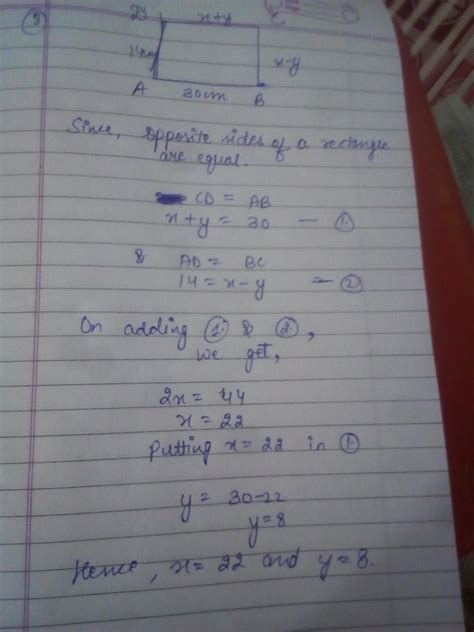 ③
D x+y C
14cm x-y
A 30cm B
Since, Opposite sides of a rectangle
are equal.
CD = AB
x+y = 30 — ①
& AD = BC
14 = x-y — ②
On adding ① & ②,
we get,
2x = 44
x = 22
Putting x = 22 in ①
y = 30-22
y=8
Hence, x= 22 and y=8.